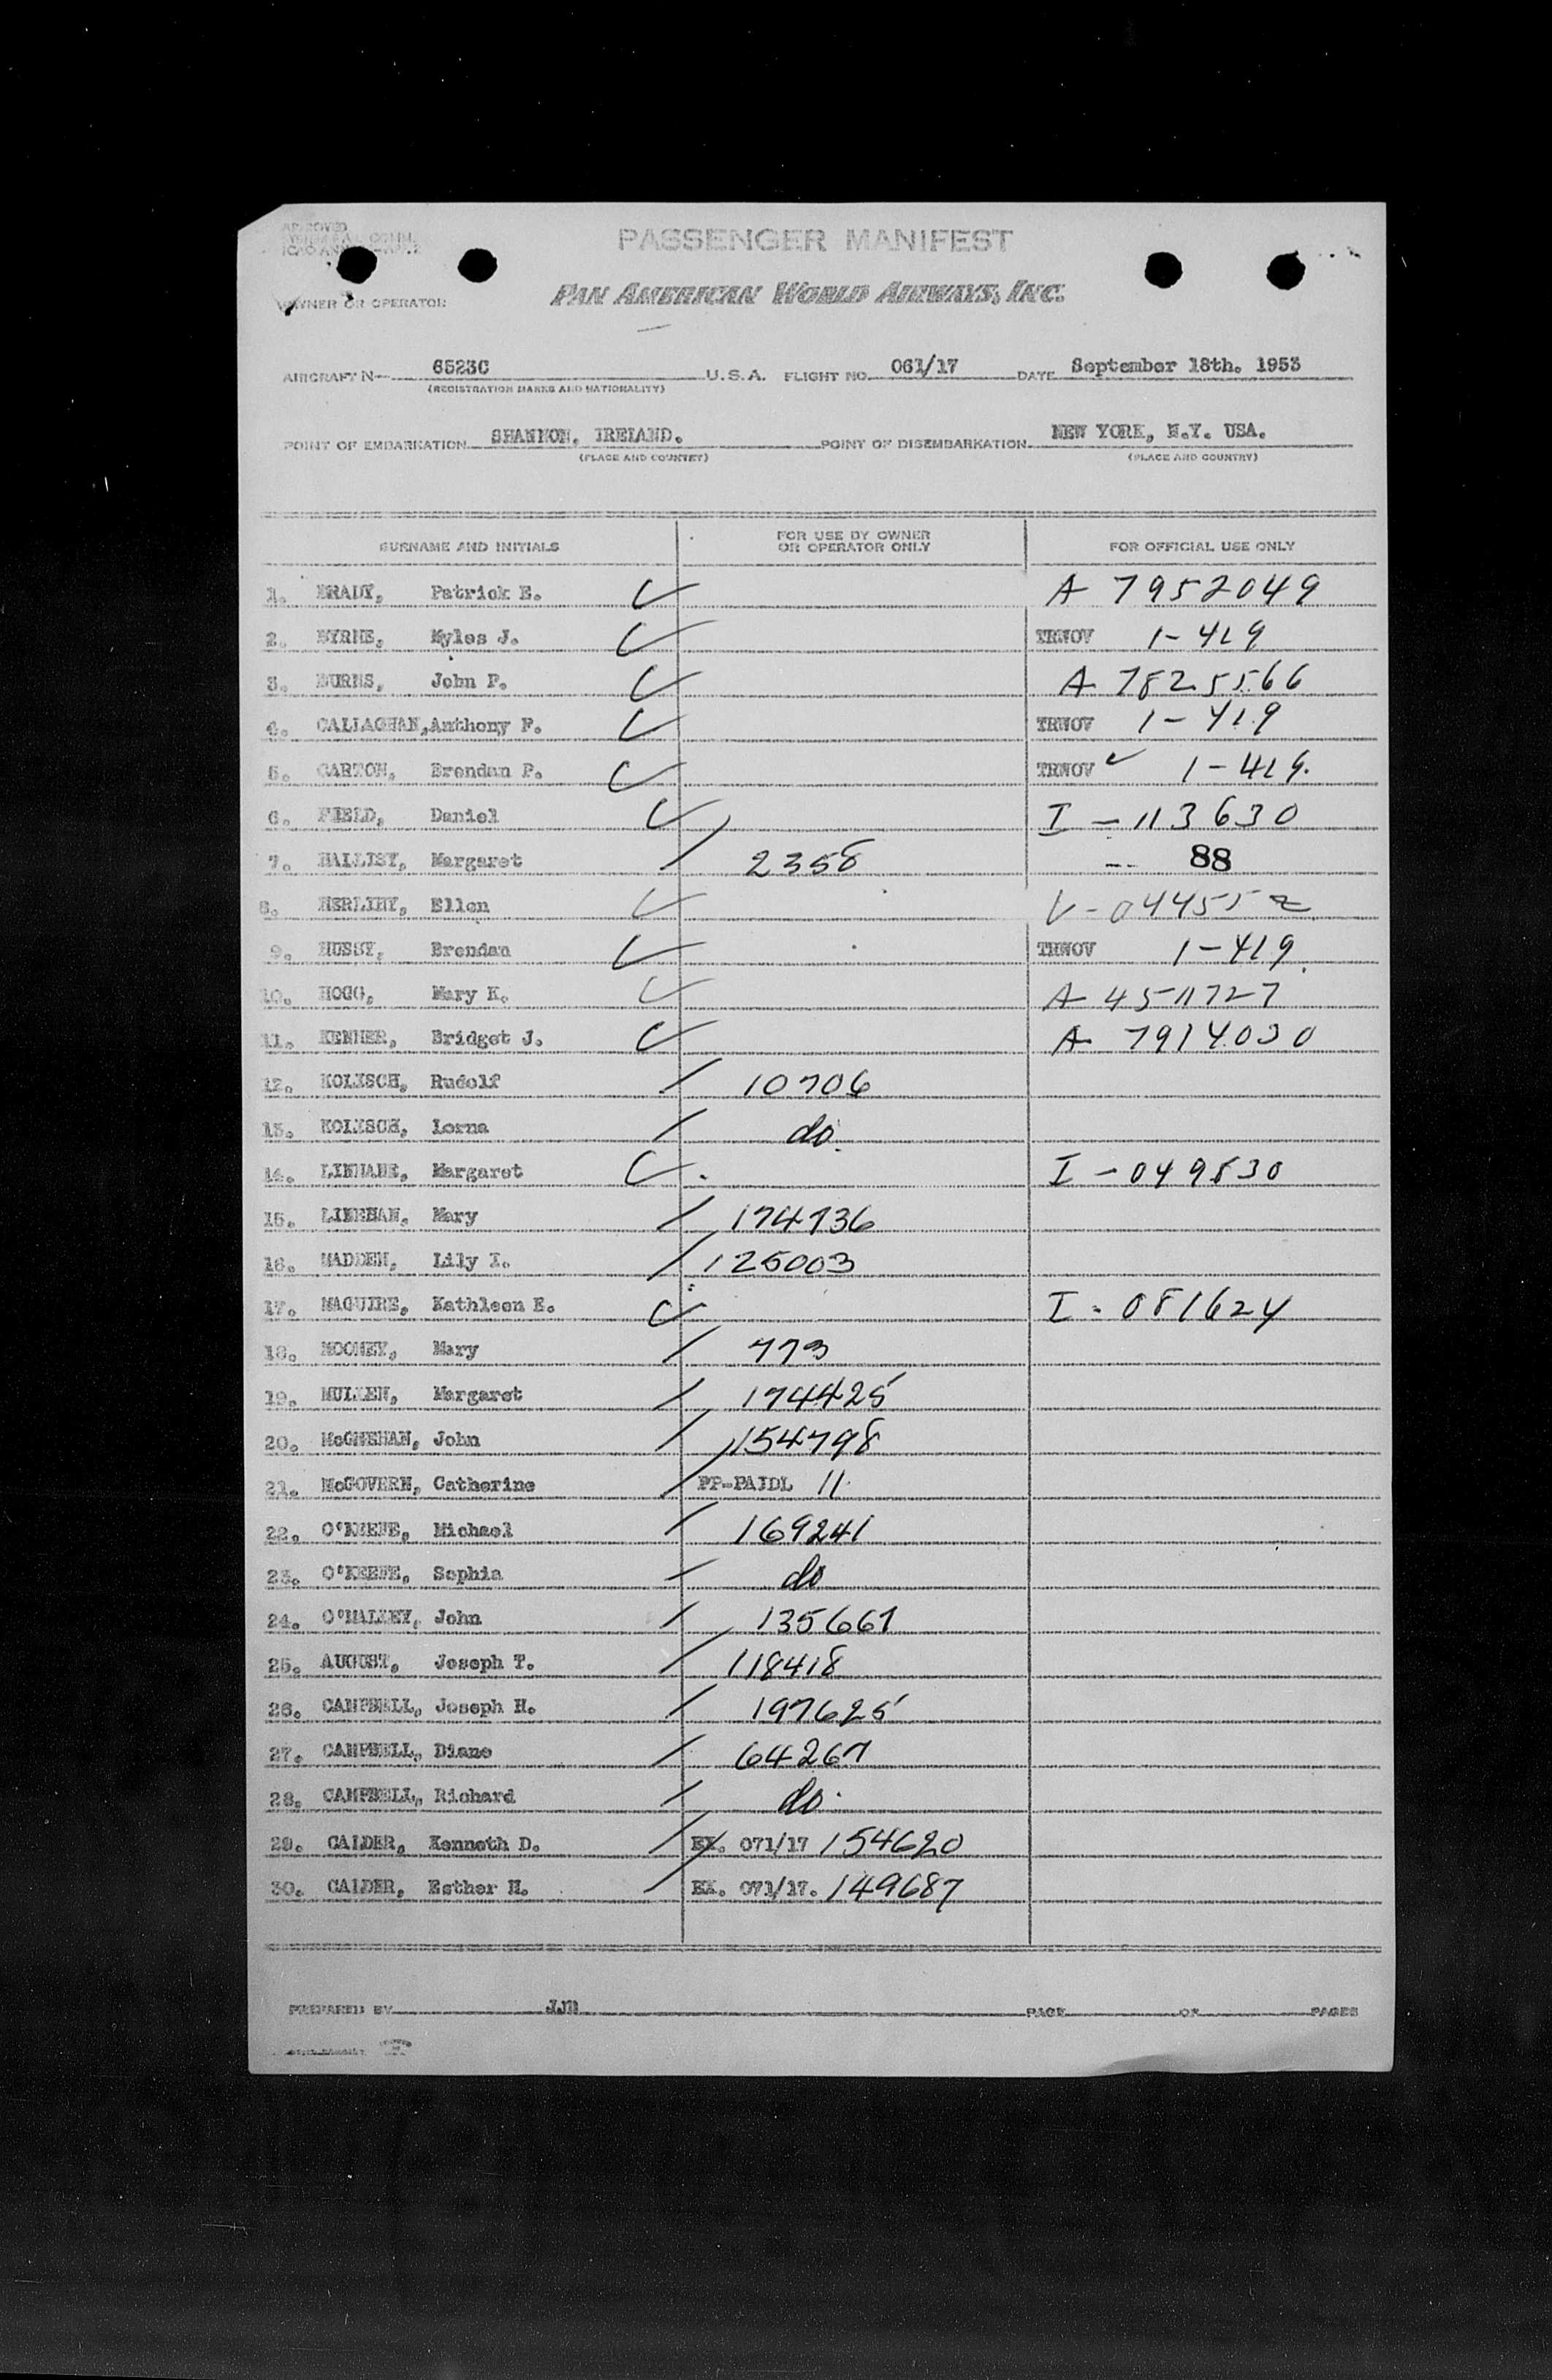 APPROVED
PASSENGER MANIFEST
OWNER OR OPERATOR
PAN AMERICAN WORLD AIRWAYS, INC.
AIRCRAFT N— 6523C U.S.A. FLIGHT NO. 061/17 DATE September 18th. 1953
(REGISTRATION MARKS AND NATIONALITY)
POINT OF EMBARKATION SHANNON, IRELAND. POINT OF DISEMBARKATION NEW YORK, N.Y. USA.
(PLACE AND COUNTRY) (PLACE AND COUNTRY)
SURNAME AND INITIALS FOR USE BY OWNER OR OPERATOR ONLY FOR OFFICIAL USE ONLY
1. BRADY, Patrick E. ✓ A 7952049
2. BYRNE, Myles J. ✓ TRNOV 1-419
3. BURNS, John P. ✓ A 7825566
4. CALLAGHAN, Anthony F. ✓ TRNOV 1-419
5. CARTON, Brendan P. ✓ TRNOV ✓ 1-419.
6. FIELD, Daniel ✓ I - 113630
7. HALLISY, Margaret / 2358 -- 88
8. HERLIHY, Ellen ✓ V-044552
9. HUSSY, Brendan ✓ TRNOV 1-419
10. HOGG, Mary K. ✓ A 4511727
11. KENNER, Bridget J. ✓ A 7914030
12. KOLISCH, Rudolf / 10706
13. KOLISCH, Lorna / do
14. LINHANE, Margaret ✓ I - 049830
15. LINEHAN, Mary / 174736
16. MADDEN, Lily I. / 125003
17. MAGUIRE, Kathleen E. ✓ I - 081624
18. MOONEY, Mary / 773
19. MULLEN, Margaret / 174425
20. McGNEHAN, John / 154798
21. McGOVERN, Catherine / PP-PAIDL 11
22. O'KEEFE, Michael / 169241
23. O'KEEFE, Sophia / do
24. O'MALLEY, John / 135667
25. AUGUST, Joseph T. / 118418
26. CAMPBELL, Joseph H. / 197625
27. CAMPBELL, Diane / 64267
28. CAMPBELL, Richard / do
29. CALDER, Kenneth D. / EX. 071/17 154620
30. CALDER, Esther H. / EX. 071/17. 149687
PREPARED BY PAGE OF PAGES